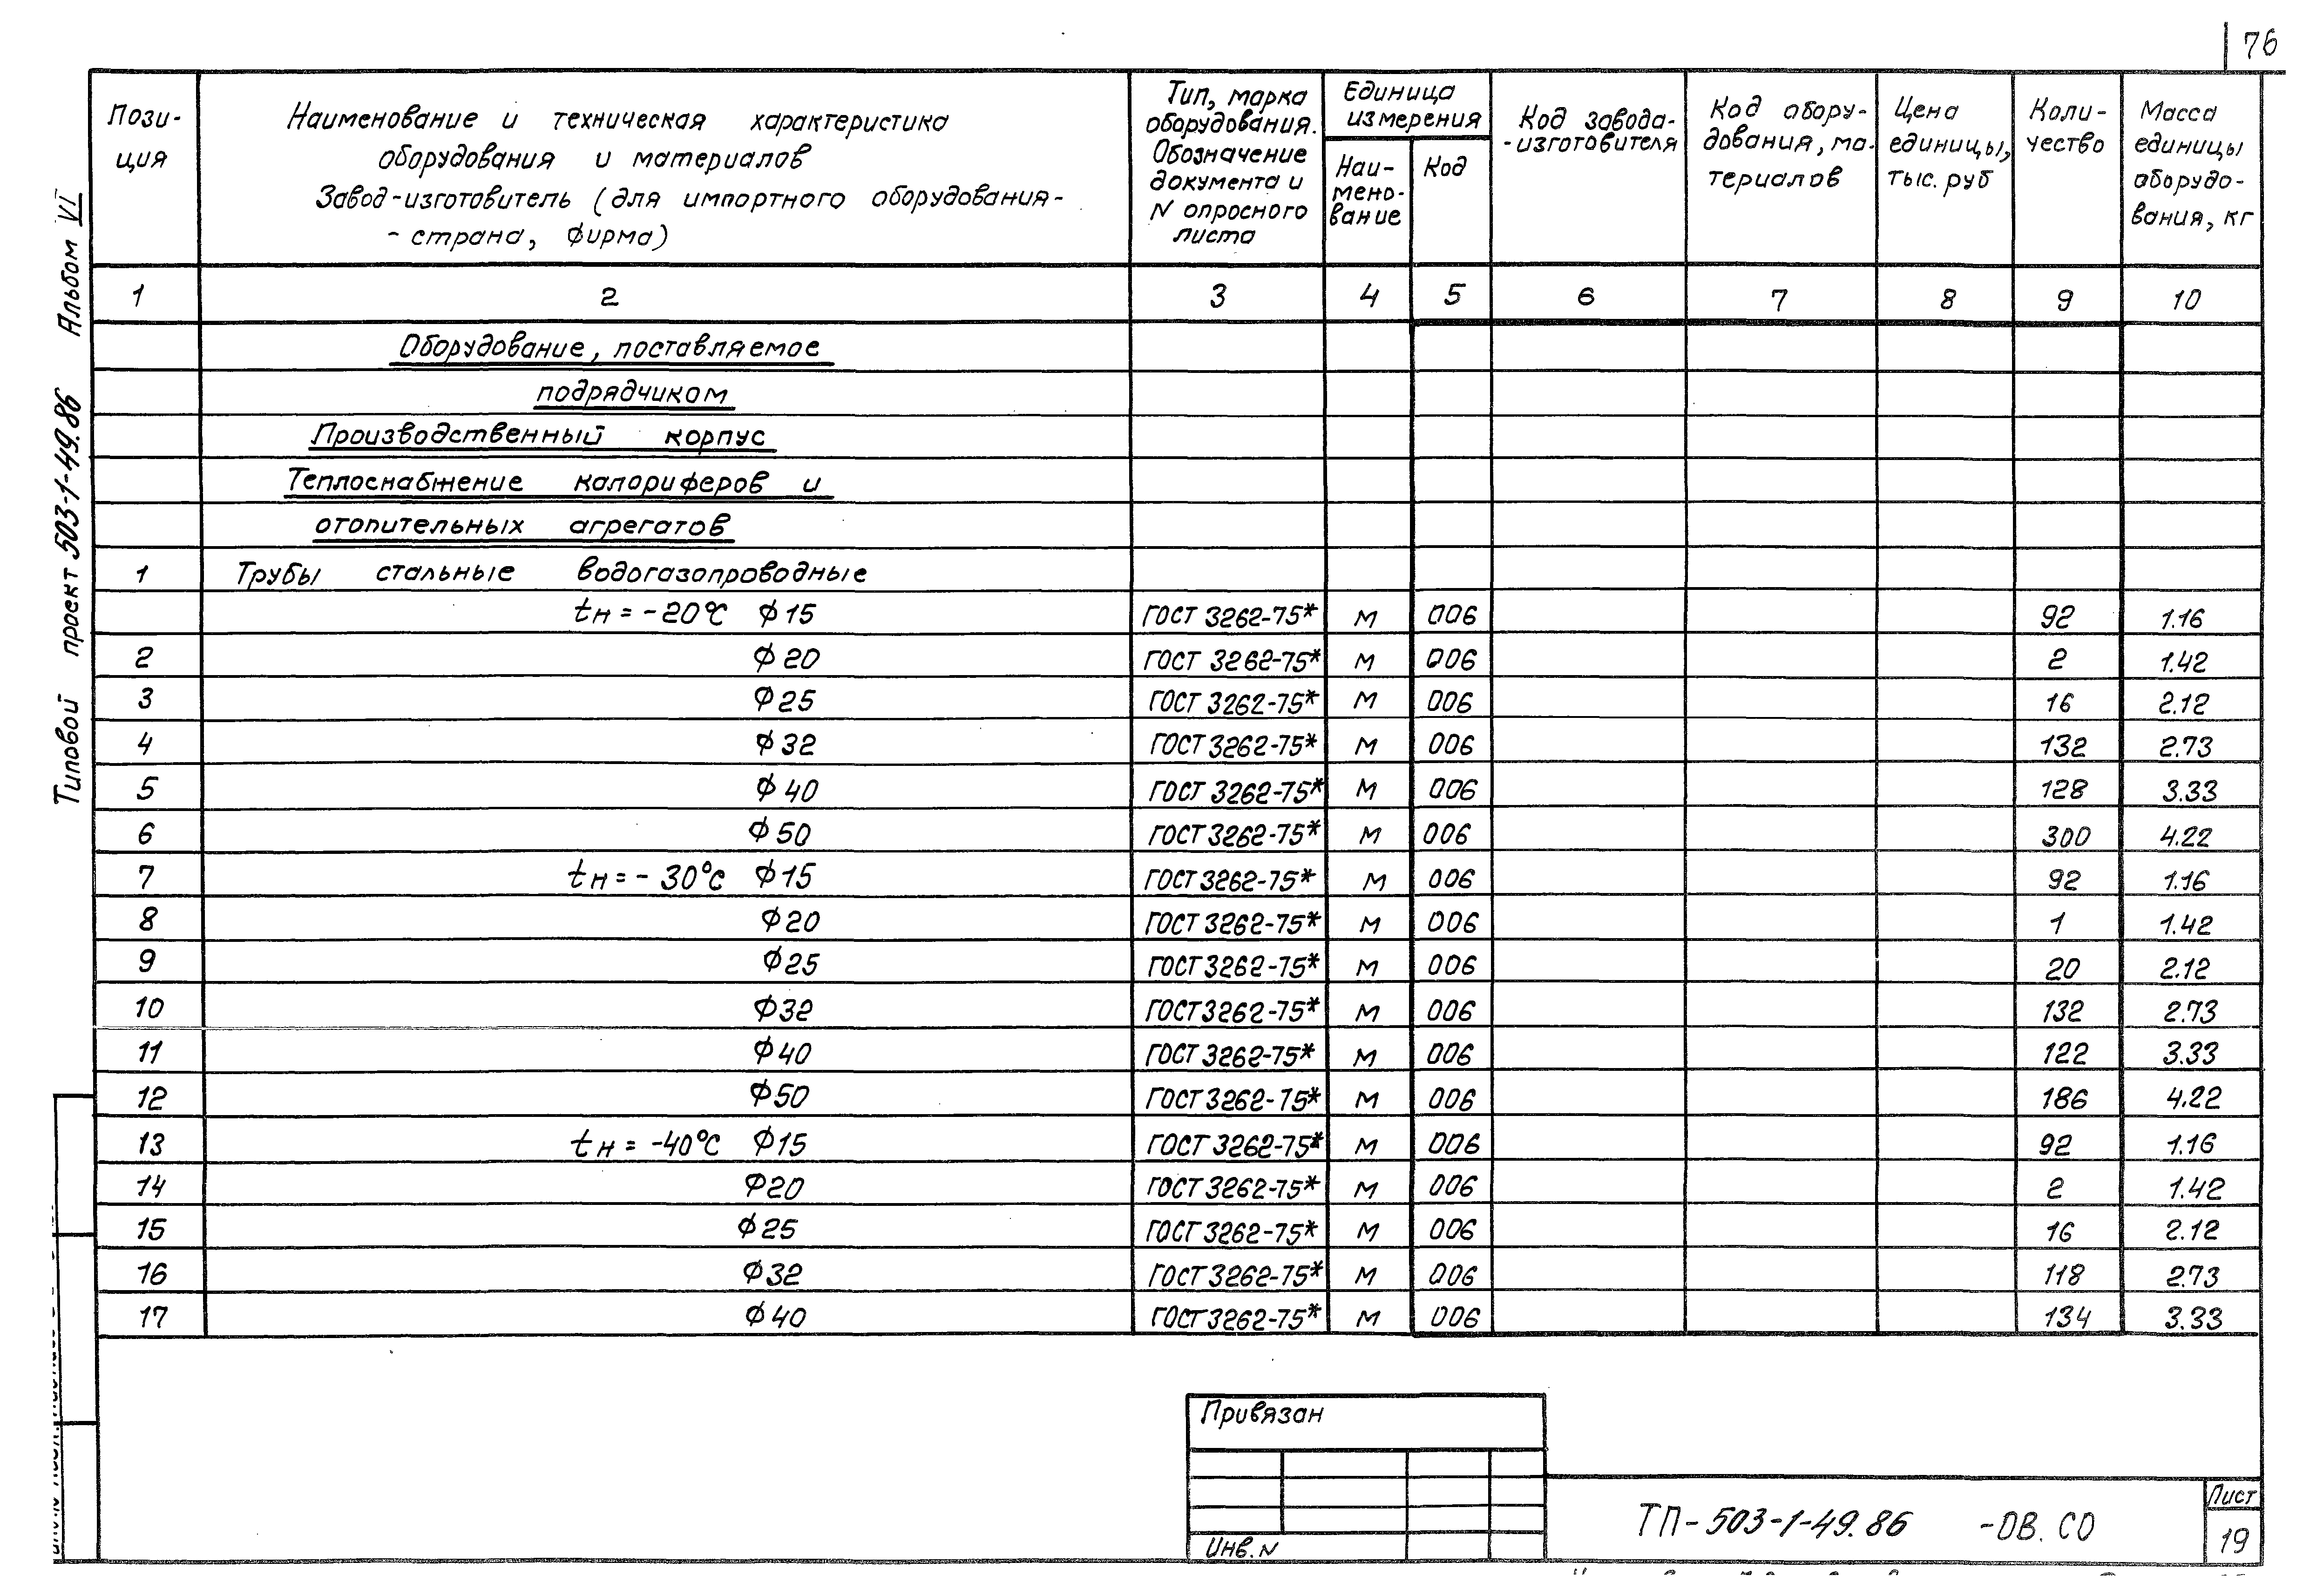 76
Пози-
ция
Наименование и техническая характеристика
оборудования и материалов
Завод-изготовитель (для импортного оборудования-
- страна, фирма)
Тип, марка
оборудования.
Обозначение
документа и
N опросного
листа
Единица
измерения
Наи-
мено-
вание
Код
Код завода-
-изготовителя
Код обору-
дования, ма-
териалов
Цена
единицы,
тыс. руб
Коли-
чество
Масса
единицы
оборудо-
вания, кг
1 2 3 4 5 6 7 8 9 10
Оборудование, поставляемое
подрядчиком
Производственный корпус
Теплоснабжение калориферов и
отопительных агрегатов
1 Трубы стальные водогазопроводные
tн = -20°C ф15 ГОСТ 3262-75* м 006 92 1.16
2 ф20 ГОСТ 3262-75* м 006 2 1.42
3 ф25 ГОСТ 3262-75* м 006 16 2.12
4 ф32 ГОСТ 3262-75* м 006 132 2.73
5 ф40 ГОСТ 3262-75* м 006 128 3.33
6 ф50 ГОСТ 3262-75* м 006 300 4.22
7 tн = - 30°C ф15 ГОСТ 3262-75* м 006 92 1.16
8 ф20 ГОСТ 3262-75* м 006 1 1.42
9 ф25 ГОСТ 3262-75* м 006 20 2.12
10 ф32 ГОСТ 3262-75* м 006 132 2.73
11 ф40 ГОСТ 3262-75* м 006 122 3.33
12 ф50 ГОСТ 3262-75* м 006 186 4.22
13 tн = -40°C ф15 ГОСТ 3262-75* м 006 92 1.16
14 ф20 ГОСТ 3262-75* м 006 2 1.42
15 ф25 ГОСТ 3262-75* м 006 16 2.12
16 ф32 ГОСТ 3262-75* м 006 118 2.73
17 ф40 ГОСТ 3262-75* м 006 134 3.33
Типовой проект 503-1-49.86 Альбом VI
Привязан
Инв.N
ТП-503-1-49.86 -ОВ.СО
Лист
19